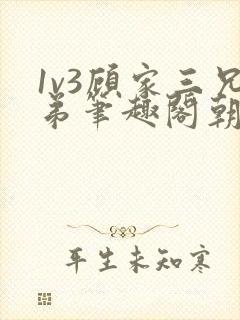 1v3顾家三兄
弟笔趣阁朝
平生未知寒